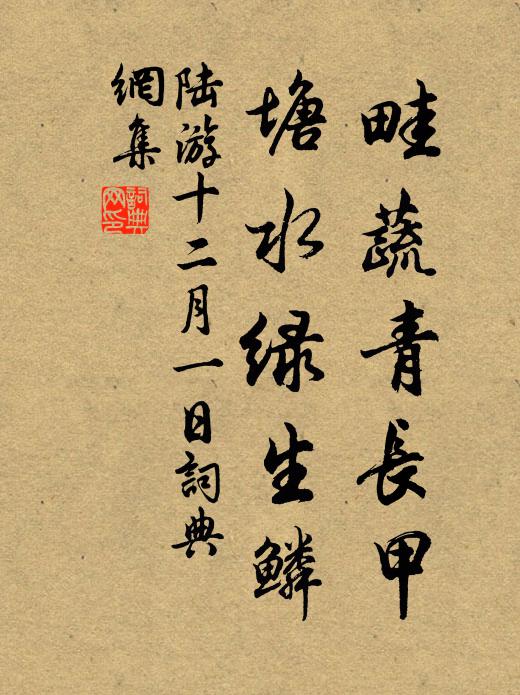 畦蔬青長甲
塘水緑生鱗
陆游十二月一日詞典
網集
詞典
网印